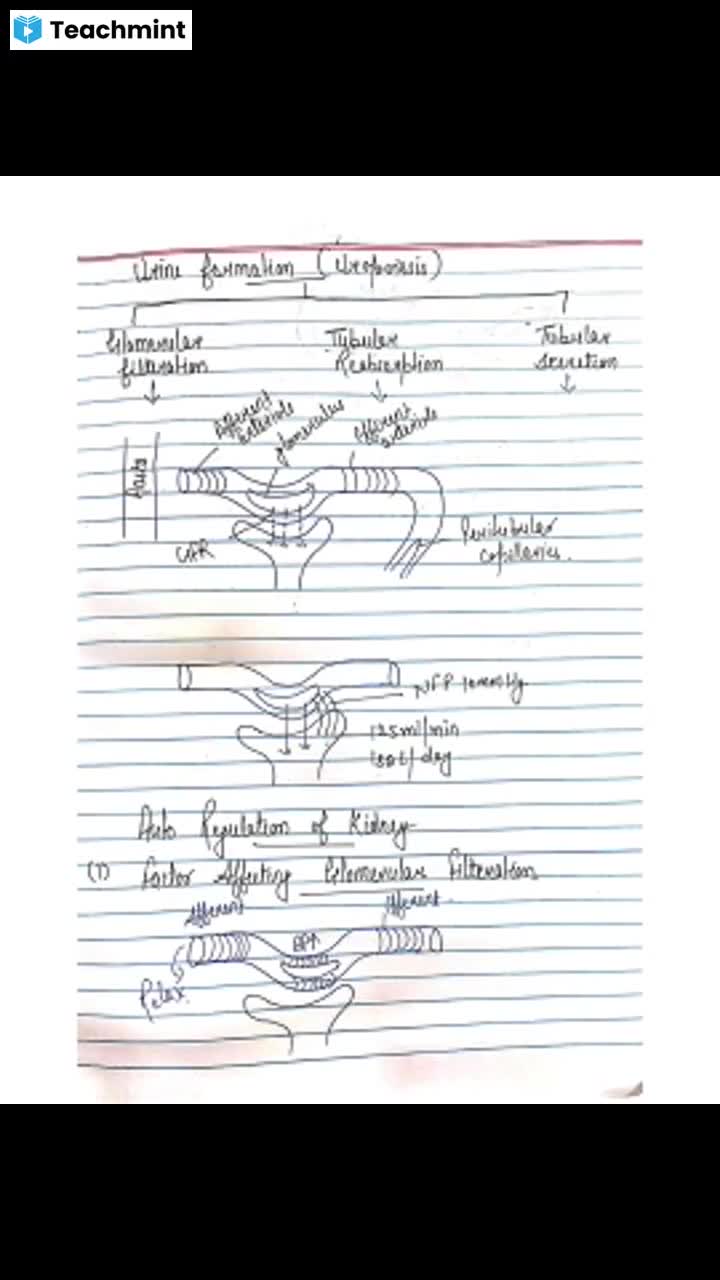 Teachmint
Urine formation (Uroporesis)
Glomerular
filteration
Tubular
Reabsorption
Tubular
secretion
Afferent
arteriole
glomerulus
Efferent
arteriole
GFR
Peritubular
capilaries.
NFP 10mmHg
125ml/min
180L/day
Auto Regulation of Kidney
(1) Factor Affecting Glomerular filteration
Afferent
Efferent
BP↑
Relax